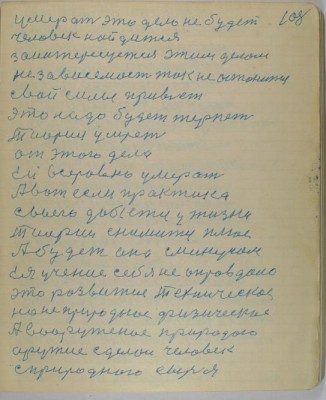 умерат это дело не будет 108
человек найдится
заинтересуется этим делом
независемост так не остонитц
свой силы привьет
это надо будет терпет
Тиории умрет
от этого дела
Ей всеровень умерат
А вот если практика
своего добьется у жизни
Тиории снимитц плюс
А будет она с минусом
Ея учение себя не оправдано
это развитие Техническое
на неприродное физическое
А вооружоное природаю
оружие сделон человек
с природного сырья